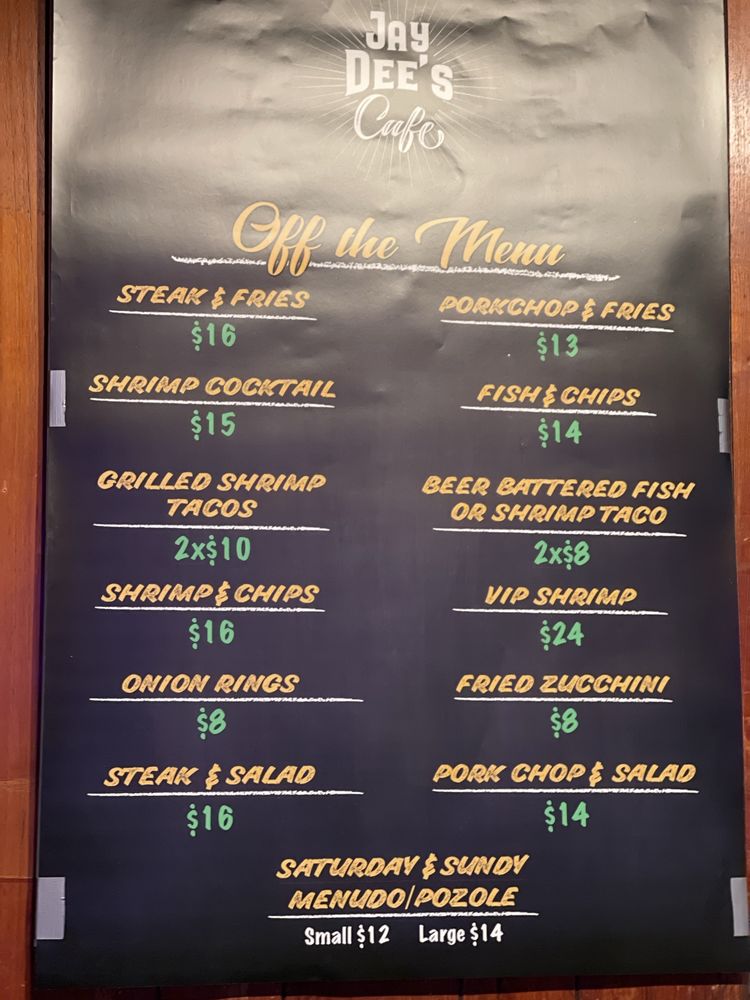 JAY
DEE'S
Cafe
Off the Menu
STEAK & FRIES
$16
PORKCHOP & FRIES
$13
SHRIMP COCKTAIL
$15
FISH & CHIPS
$14
GRILLED SHRIMP
TACOS
2x$10
BEER BATTERED FISH
OR SHRIMP TACO
2x$8
SHRIMP & CHIPS
$16
VIP SHRIMP
$24
ONION RINGS
$8
FRIED ZUCCHINI
$8
STEAK & SALAD
$16
PORK CHOP & SALAD
$14
SATURDAY & SUNDY
MENUDO/POZOLE
Small $12 Large $14